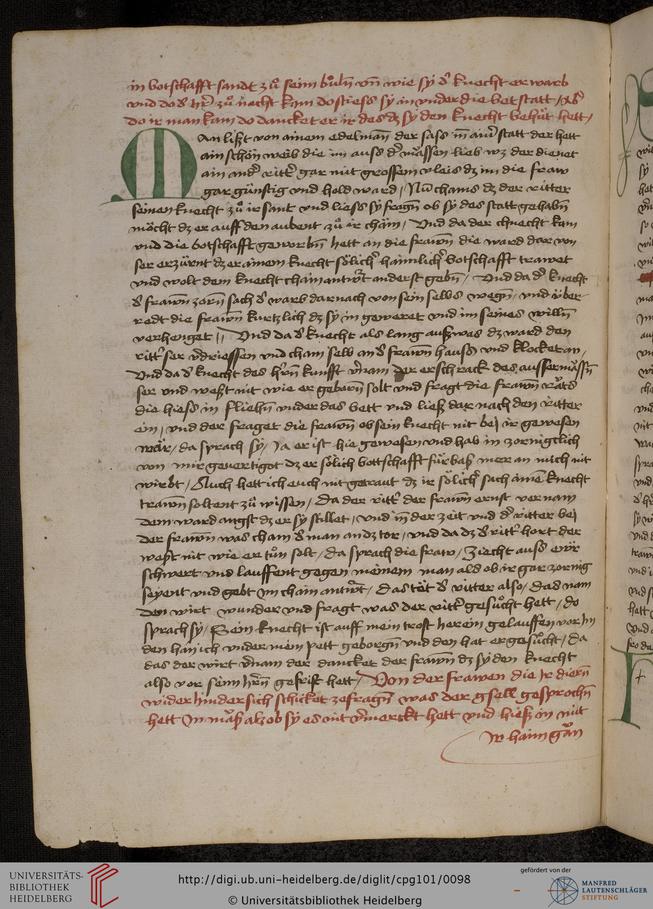 in botschafft sandt zů seim bůln vn wie sy d' knecht erwarb
vnd do d' h'r zů nacht kam do stiess sy in vnder die betstatt / als
do ir man kam do dancket er ir des dz sy den knecht behüt hett /
Man lißt von ainem edelman der sass in ainer statt der hett
ain schön weib die im auss d' massen lieb wz der dienet
ain and' ritt' gar mit grossem vleis dz im die fraw
gar günstig vnd hold ward / Nu cham es dz der ritter
seinen knecht zů ir sant vnd liess sy fragn ob sy des statt gehabn
möcht dz er auff den aubent zů ir chäm / Vnd da der chnecht kam
vnd die botschafft geworbn hett an die frawn die ward dar von
ser erzürnt dz er ainem knecht sölich' haimlich' botschafft trawet
vnd wolt dem knecht chain antwrt anderst gebn / Vnd da d' knecht
d' frawn zorn sach d' warb darnach von sein selbs wegn / vnd über
redt die frawn kurtzlich dz sy in geweret vnd im seines willn
verhenget || Vnd da d' knecht als lang auß was dz ward den
ritt' ser v'driessen vnd cham selb an d' frawn hauss vnd klocket an /
Vnd da d' knecht des h'rn kunfft v'nam der erschrack des aussermassn
ser vnd weßt nit wie er geborn solt vnd fragt die frawn räts
die hiess in fliehn vnder das bett vnd ließ dar nach den ritter
ein / vnd der fraget die frawn ob sein knecht nit bej ir gewesen
wär / da sprach sy / Ja er ist hie gewesen vnd hab in zornigclich
von mir gevertigot dz er sölich bottschafft fürbaß mer an mich nit
wirbt / Auch hett ich euch nit getraut dz ir sölich' sach aim knecht
trawn soltent zů wissen / Da der ritt' der frawn ernst vernam
dem ward angst dz er sy stillet / vnd in der zeit vnd d' ritter bej
der frawn was cham d' man andz tor / vnd da dz d' ritt' hort der
weßt nit wie er tůn solt / Da sprach die fraw / Ziecht auss ewr
schwert vnd lauffent gegen meinem man als ob ir gar zornig
seyent vnd gebt im chain antwrt / das tät d' ritter also / Das nam
den wirt wunder vnd fragt was der ritt' gesůcht hett / do
sprach sy / Sein knecht ist auff mein trost herein gelauffen vor im
den han ich vnder mein pett geborgn vnd den hat er gesůcht / da
das der wirt v'nam der dancket der frawn dz sy den knecht
also vor seim h'rn gefrist hett / Von der frawen die Ir diern
wider hinder sich schicket ze fragn was der gsell gesprochn
hett In mäß als ob sy es nit v'merckt hett vnd hieß in nitt
Ir haim gän
UNIVERSITÄTS-
BIBLIOTHEK
HEIDELBERG
http://digi.ub.uni-heidelberg.de/diglit/cpg101/0098
© Universitätsbibliothek Heidelberg
gefördert von der
MANFRED
LAUTENSCHLÄGER
STIFTUNG